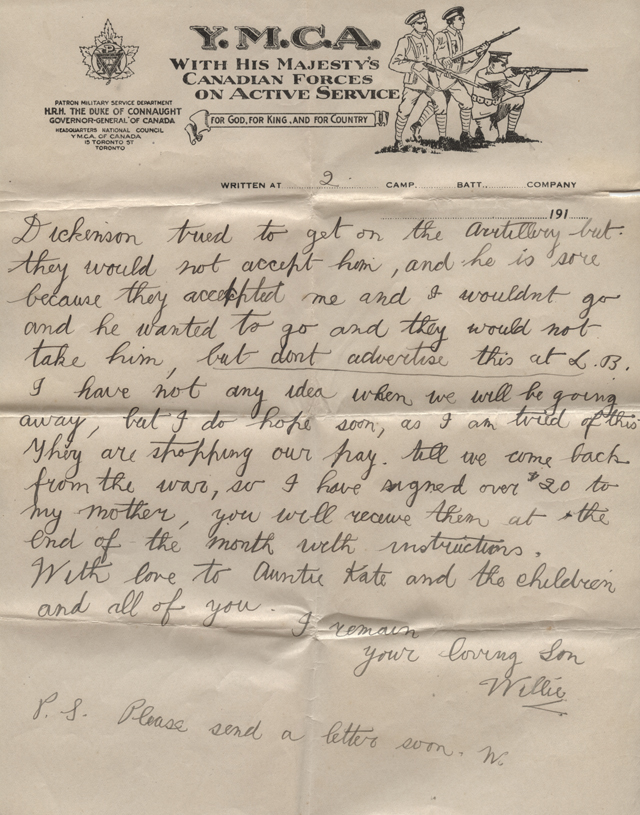 Y.M.C.A.
WITH HIS MAJESTY'S
CANADIAN FORCES
ON ACTIVE SERVICE
FOR GOD, FOR KING, AND FOR COUNTRY
PATRON MILITARY SERVICE DEPARTMENT
H.R.H. THE DUKE OF CONNAUGHT
GOVERNOR-GENERAL OF CANADA
HEADQUARTERS NATIONAL COUNCIL
Y.M.C.A. OF CANADA
15 TORONTO ST
TORONTO
WRITTEN AT 2 CAMP. BATT., COMPANY
191
Dickenson tried to get on the Artillery but
they would not accept him, and he is sore
because they accepted me and I wouldnt go
and he wanted to go and they would not
take him, but dont advertise this at L.B.
I have not any idea when we will be going
away, but I do hope soon, as I am tired of this
They are stopping our pay. till we come back
from the war, so I have signed over $20 to
my mother, you will receive them at the
end of the month with instructions.
With love to Auntie Kate and the children
and all of you.
I remain
your loving Son
Willie
P.S. Please send a letter soon. W.